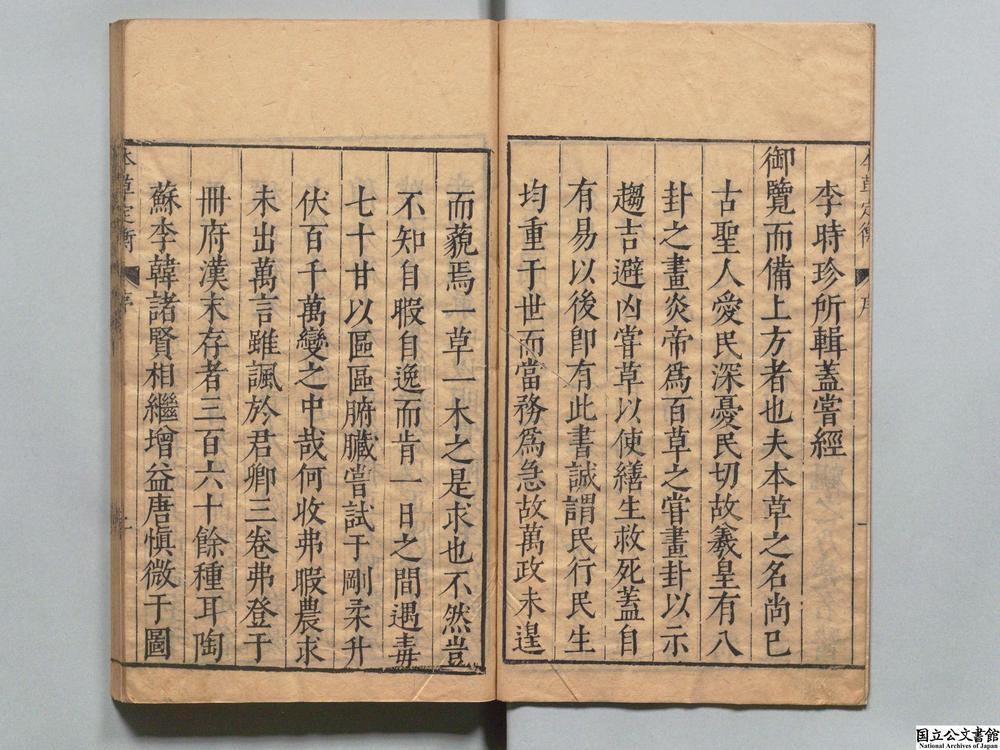 李時珍所輯蓋嘗經
御覽而備上方者也夫本草之名尚巳
古聖人愛民深憂民切故羲皇有八
卦之畫炎帝爲百草之甞畫卦以示
趨吉避凶甞草以使繕生救死蓋自
有易以後卽有此書誠謂民行民生
均重于世而當務爲急故萬政未遑
而藐焉一草一木之是求也不然豈
不知自暇自逸而肯一日之間遇毒
七十甘以區區腑臟嘗試于剛柔升
伏百千萬變之中哉何收弗暇農求
未出萬言雖諷於君卿三卷弗登于
冊府漢末存者三百六十餘種耳陶
蘇李韓諸賢相繼增益唐愼微于圖
本草定衡 序
国立公文書館
National Archives of Japan